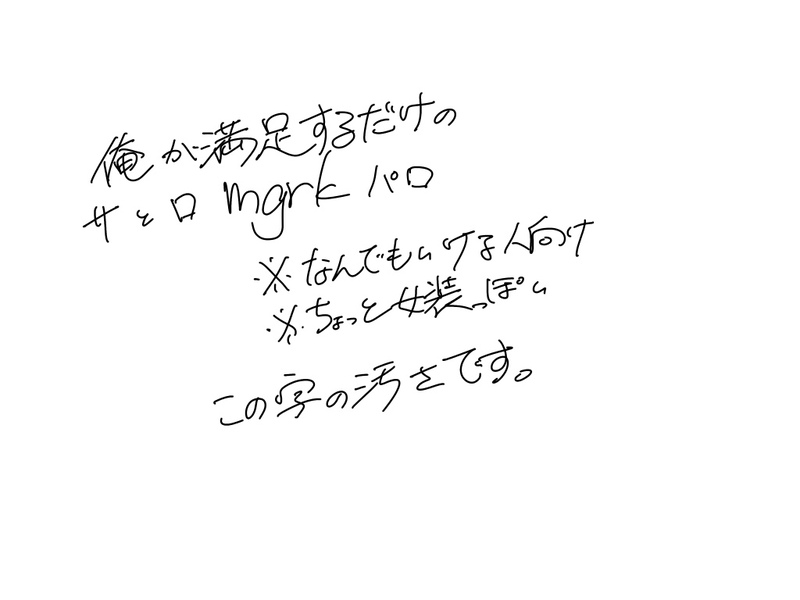 俺が満足するだけの
サとロ mgrk パロ
※なんでもいける人向け
※ちょっと女装っぽい
この字の汚さです。